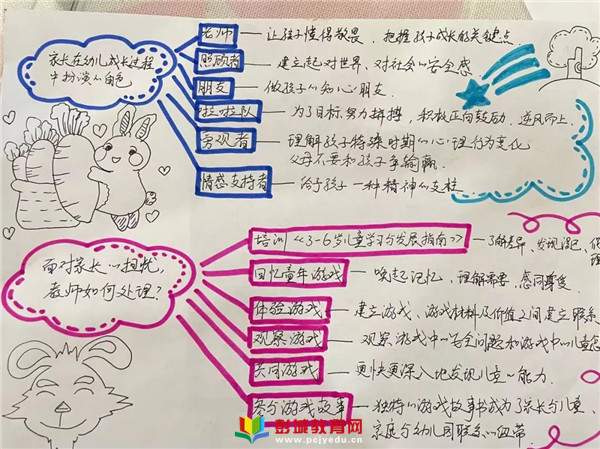 家长在幼儿成长过程
中扮演的角色
老师 — 让孩子懂得敬畏,把握孩子成长的关键点
照顾者 — 建立起对世界、对社会的安全感
朋友 — 做孩子的知心朋友.
啦啦队 — 为了目标,努力拼搏,积极正向鼓励,逆风而上.
旁观者 — 理解孩子特殊时期的心理行为变化
父母不要和孩子争输赢
情感支持者 — 给予孩子一种精神的支柱
面对家长的担忧,
老师如何处理?
培训《3-6岁儿童学习与发展指南》— 了解差异、发现混乱、
回忆童年游戏 — 唤起记忆,理解需要,感同身受
体验游戏 — 建立游戏、游戏材料及价值之间建立联系
观察游戏 — 观察游戏中的安全问题和游戏中的儿童
共同游戏 — 更快更深入地发现儿童的能力.
参与游戏故事 — 独特的游戏故事书成为了家长与儿童、
家庭与幼儿园联系的纽带.
彭城教育网
www.pcjyedu.cn